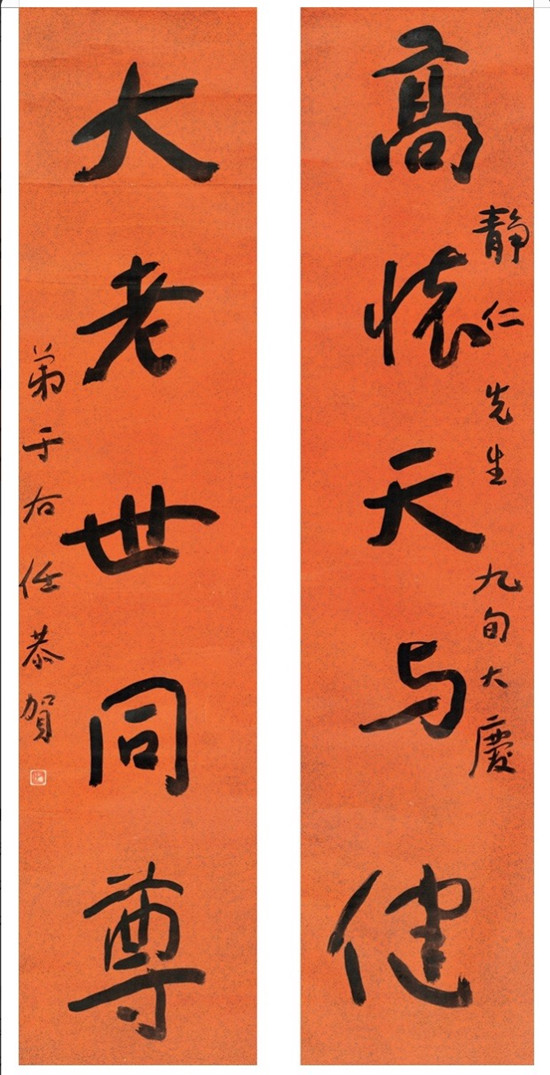 高懷天与健
靜仁先生九旬大慶
大老世同尊
弟于右任恭賀